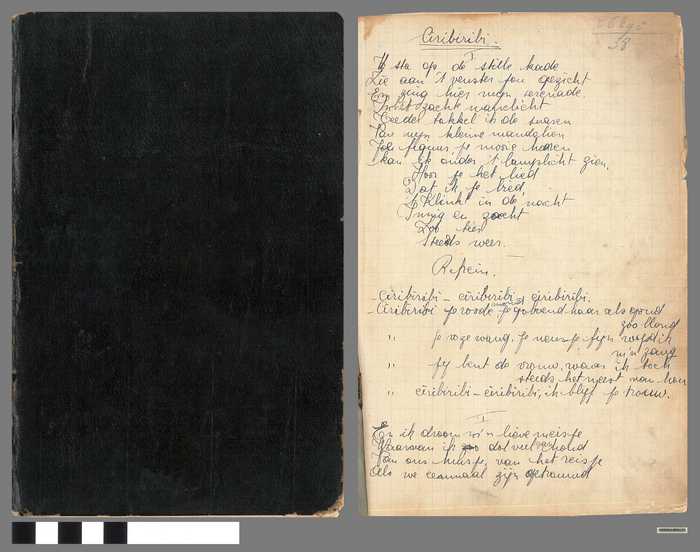 Ciribiribi.
I
Ik sta op de stille kade
Zie aan 't venster jou gezicht
En zing hier mijn serenade
In het zachte maanlicht
Teeder tokkel ik de snaren
Van mijn kleine mandolien
Jou figuur je mooie haren
kan ik onder 't lamplicht zien.
Hoor je het lied
Dat ik je bied
't Klinkt in de nacht
Innig en zacht
Zoo teer
Steeds weer.
Refrein.
-Ciribiribi - ciribiribi, ciribiribi.
-Ciribiribi je roode mond je haar als goud
zoo blond
" je roze wang. Je neusje fijn wijd ik
m'n zang
" jij bent de vrouw, waar ik toch
steeds het meest van hou
" ciribiribi - ciribiribi, ik blijf je trouw.
II
En ik droom m'n lieve meisje
Waarvan ik zoo dol veel houd
Van ons huisje, van het reisje
Als we eenmaal zijn getrouwd